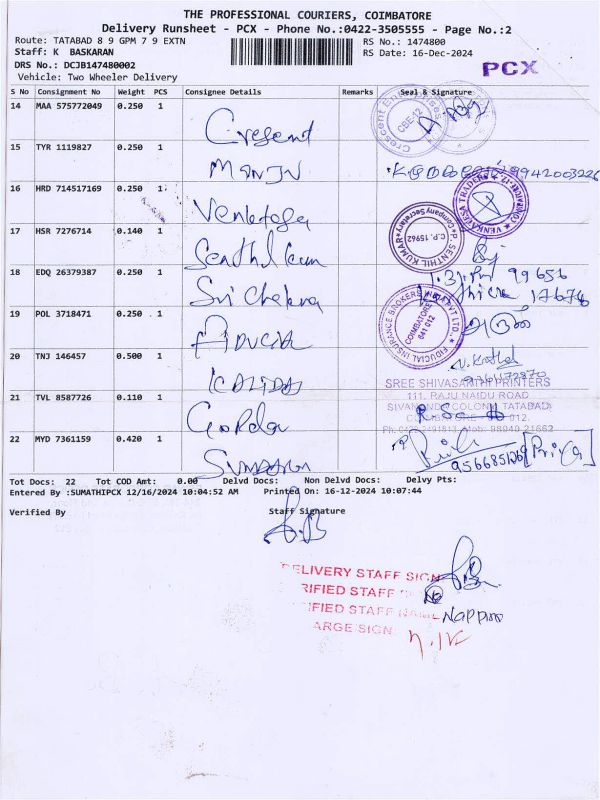 THE PROFESSIONAL COURIERS, COIMBATORE
Delivery Runsheet - PCX - Phone No.:0422-3505555 - Page No.:2
Route: TATABAD 8 9 GPM 7 9 EXTN RS No.: 1474800
Staff: K BASKARAN RS Date: 16-Dec-2024
DRS No.: DCJB147480002 PCX
Vehicle: Two Wheeler Delivery
S No Consignment No Weight PCS Consignee Details Remarks Seal & Signature
14 MAA 575772049 0.250 1 Cresent
15 TYR 1119827 0.250 1 MANJU 9942003226
16 HRD 714517169 0.250 1 Venkatesa
17 HSR 7276714 0.140 1 Senthil kum
18 EDQ 26379387 0.250 1 Sri Chakra 99656 17676
19 POL 3718471 0.250 1 FIDUCIAL
20 TNJ 146457 0.500 1 KALIDAS
21 TVL 8587726 0.110 1 Gordon
22 MYD 7361159 0.420 1 SUNDARAM [Priya]
CBE-12
P. SENTHIL KUMAR
Company Secretary
C.P. 15962
FIDUCIAL INSURANCE BROKERS INDIA PVT LTD.,
COIMBATORE
641 012
SREE SHIVASAKTHI PRINTERS
111, RAJU NAIDU ROAD
TATABAD
012.
98940 21662
Tot Docs: 22 Tot COD Amt: 0.00 Delvd Docs: Non Delvd Docs: Delvy Pts:
Entered By :SUMATHIPCX 12/16/2024 10:04:52 AM Printed On: 16-12-2024 10:07:44
Verified By Staff Signature
DELIVERY STAFF SIGN
RIFIED STAFF
IFIED STAFF NAME
ARGE SIGN